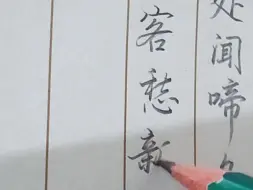 处闻啼
客愁新